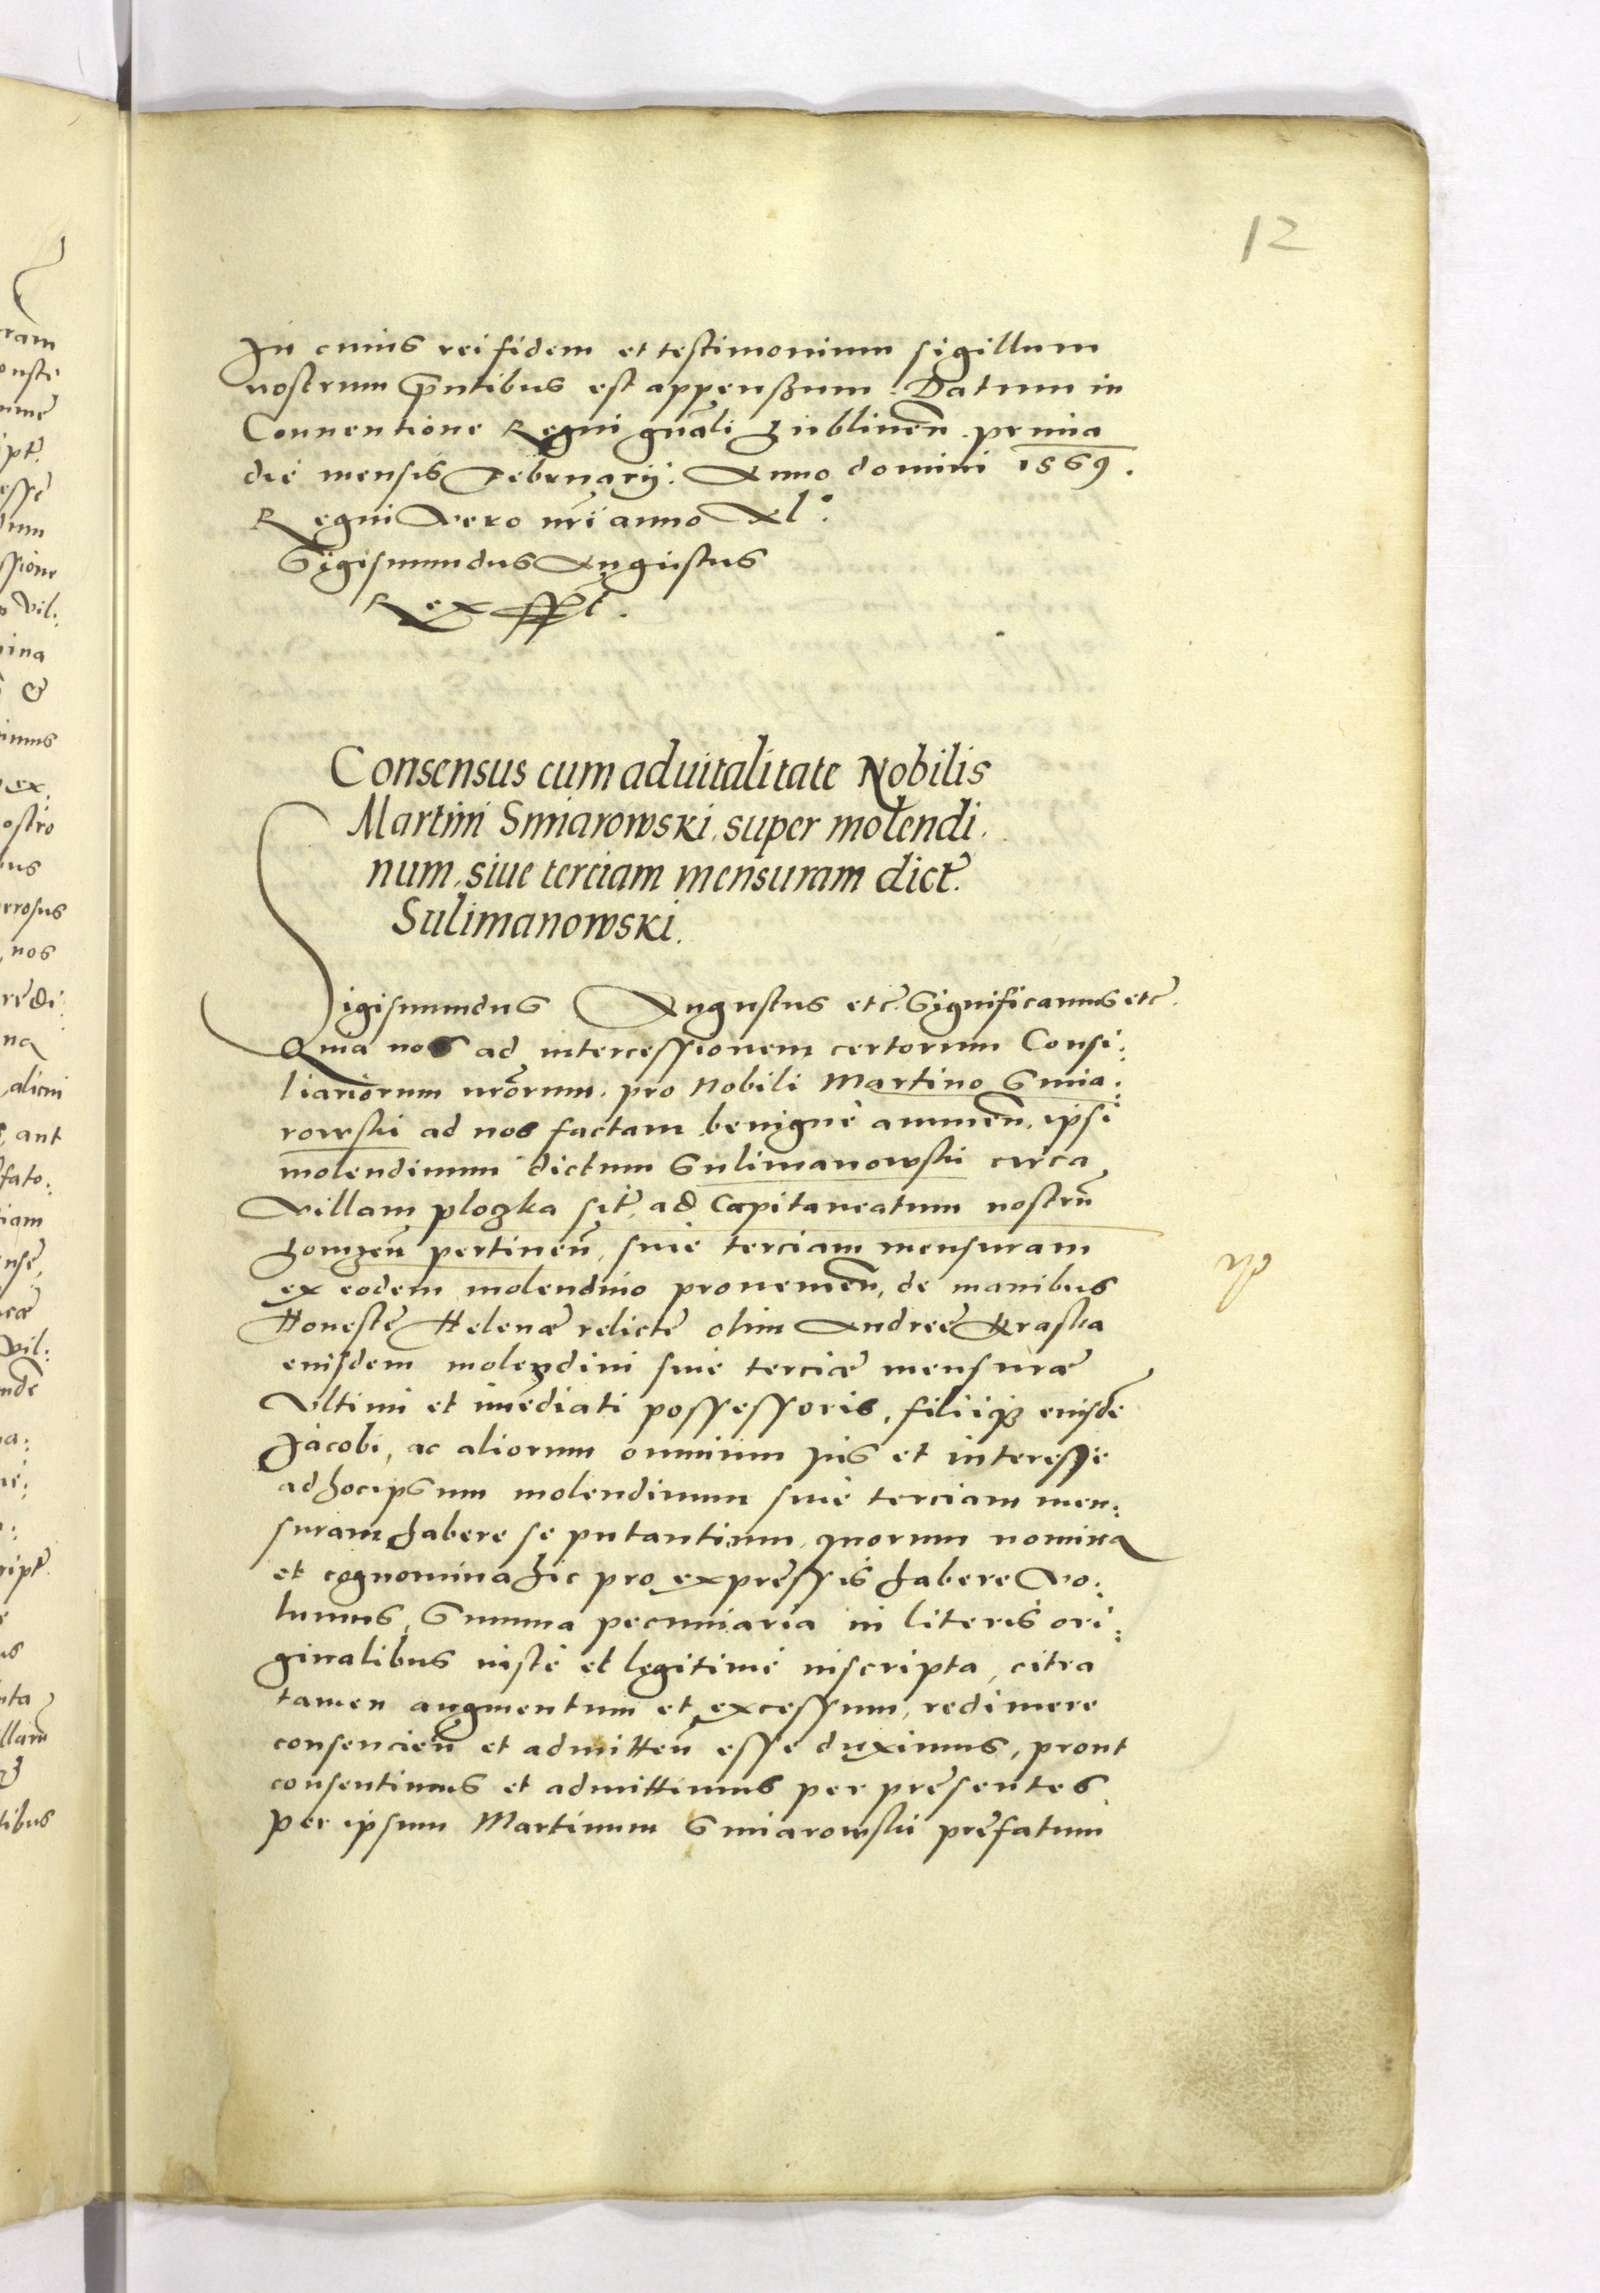 12
In cuius rei fidem et testimonium sigillum
nostrum pñtibus est appensum. Datum in
Conventione Regni gnãli Lublinen̄. prima
die mensis Februarij. Anno domini 1569.
Regni vero nr̄i anno xl°.
Sigismundus Augustus
Rex sspt̄.
Consensus cum aduitalitate Nobilis
Martini Smiarowski, super molendi,
num, siue terciam mensuram dict̃.
Sulimanowski.
Sigismundus Augustus etc̃. Significamus etc̃.
Quia nos ad intercessionem certorum Consi:
liariorum nr̄orum, pro Nobili Martino Smia:
rowski ad nos factam benigne annuen̄, ipsi
molendinum dictum Sulimanowski circa
villam plozka sit̃, ad Capitaneatum nostrū
Lomzen̄ pertinen̄, siue terciam mensuram
ex eodem molendino prouenien̄, de manibus
Honestæ Helenæ relictæ olim Andreæ Kraska
eiusdem molendini siue terciæ mensuræ
vltimi et im̄ediati possessoris, filiiq₃ eiusdē
Jacobi, ac aliorum omnium jus et interesse
ad hoc ipsum molendinum siue terciam men:
suram habere se putantium, quorum nomina
et cognomina hic pro expressis habere vo:
lumus, Summa pecuniaria in literis ori:
ginalibus iuste et legitime inscripta, citra
tamen augmentum et excessum, redimere
consencien̄ et admitten̄ esse duximus, prout
consentimus et admittimus per præsentes.
Per ipsum Martinum Smiarowski præfatum